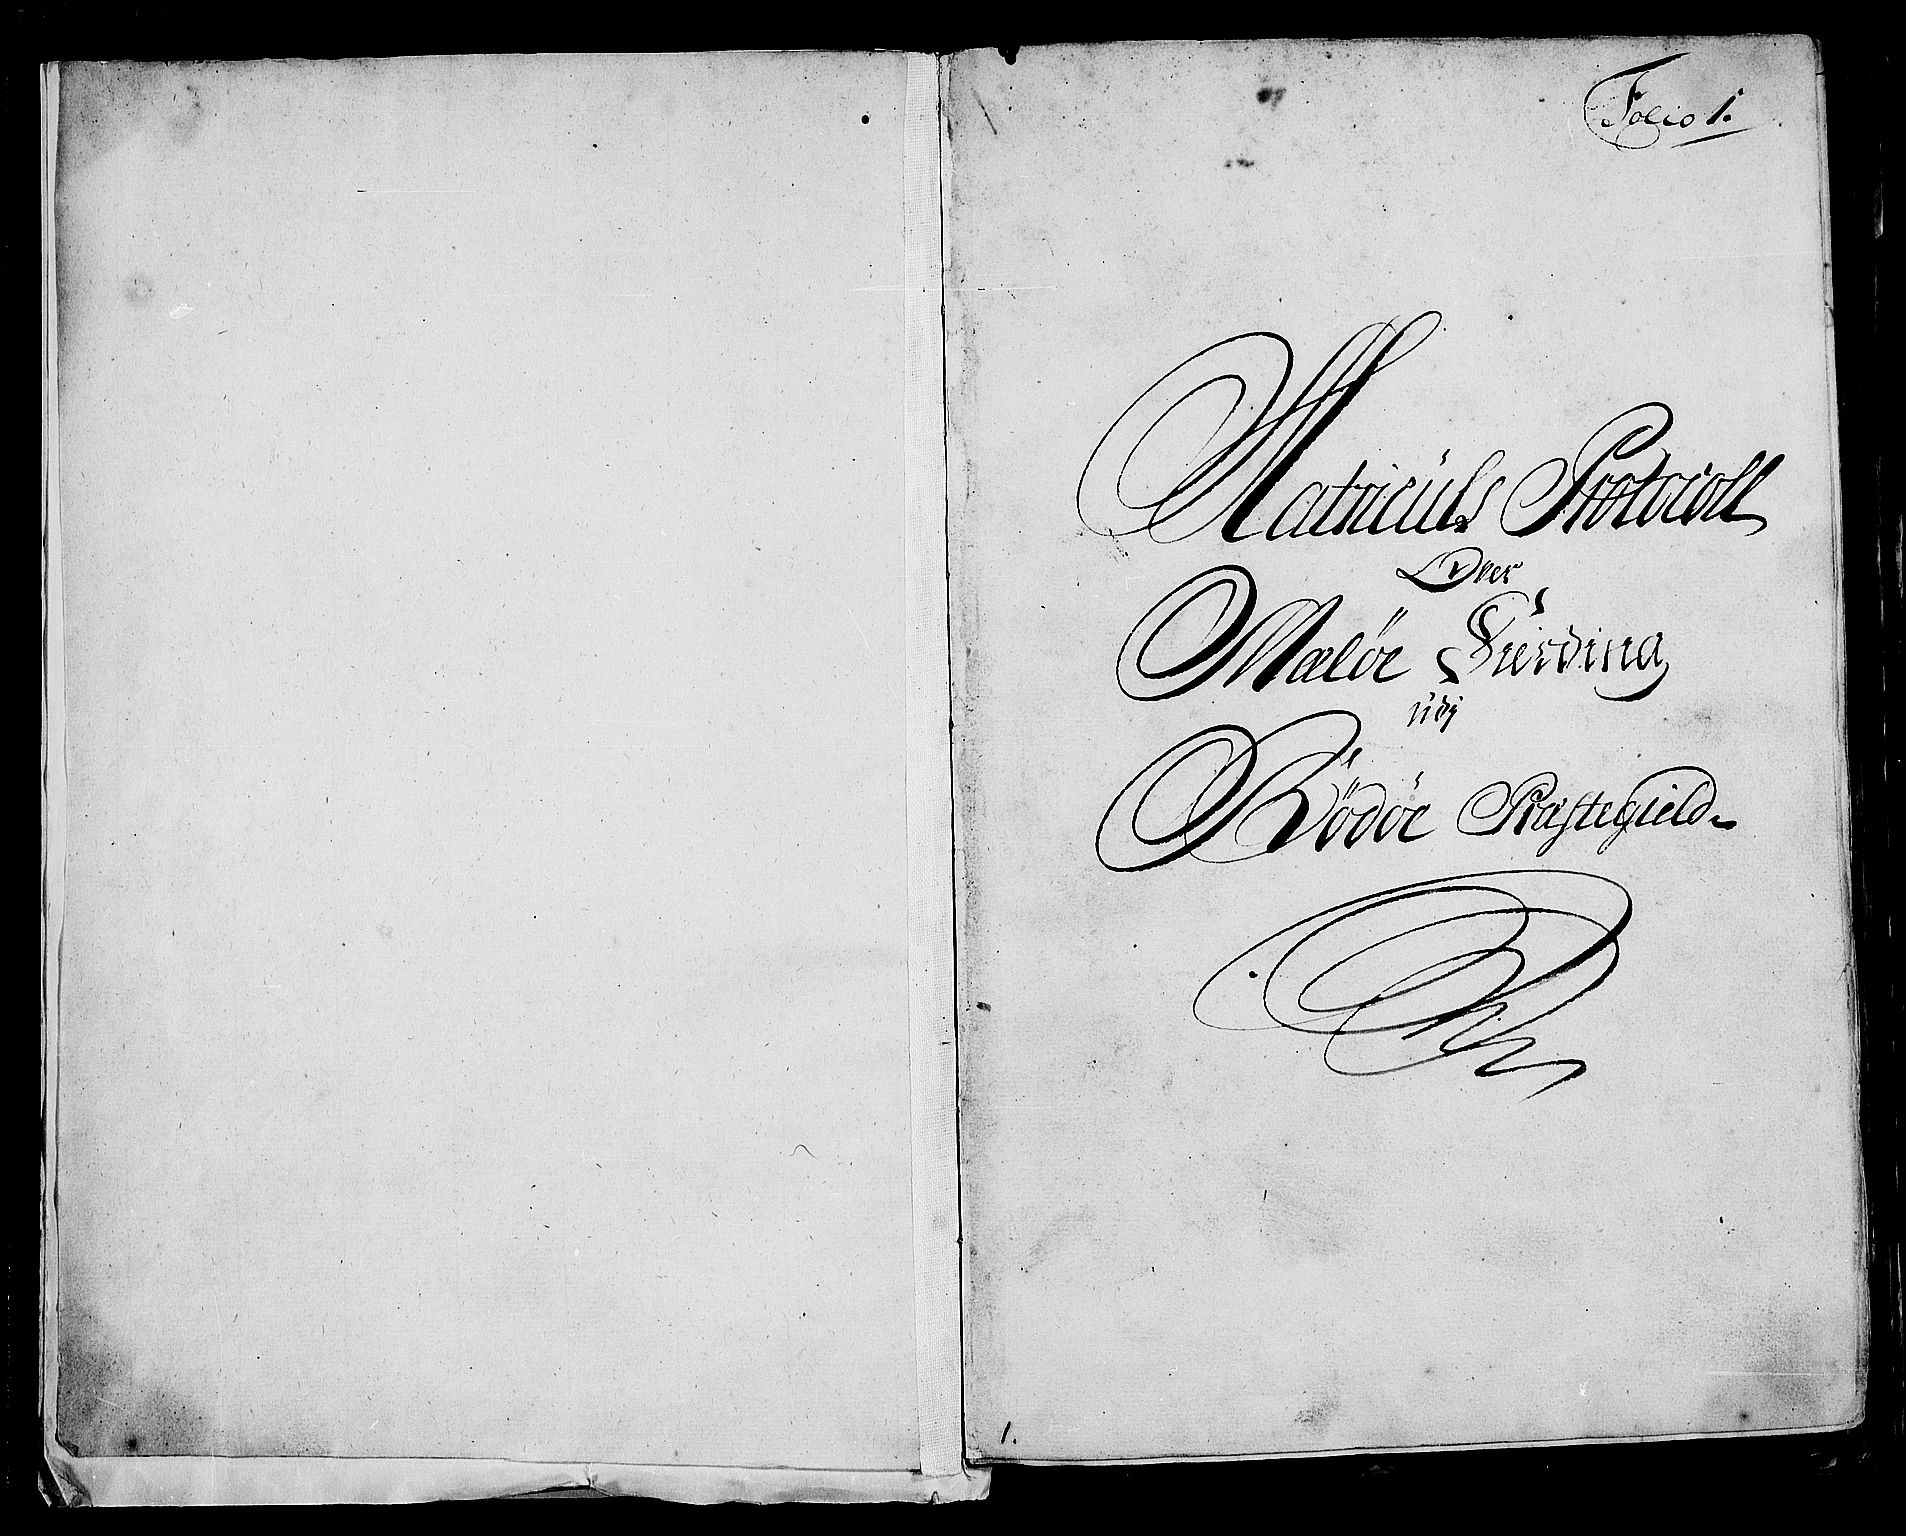 Folio 1.
Matriculs Protocoll
Over
Meløe Fierding
udj
Rödöe Præstegield
1.